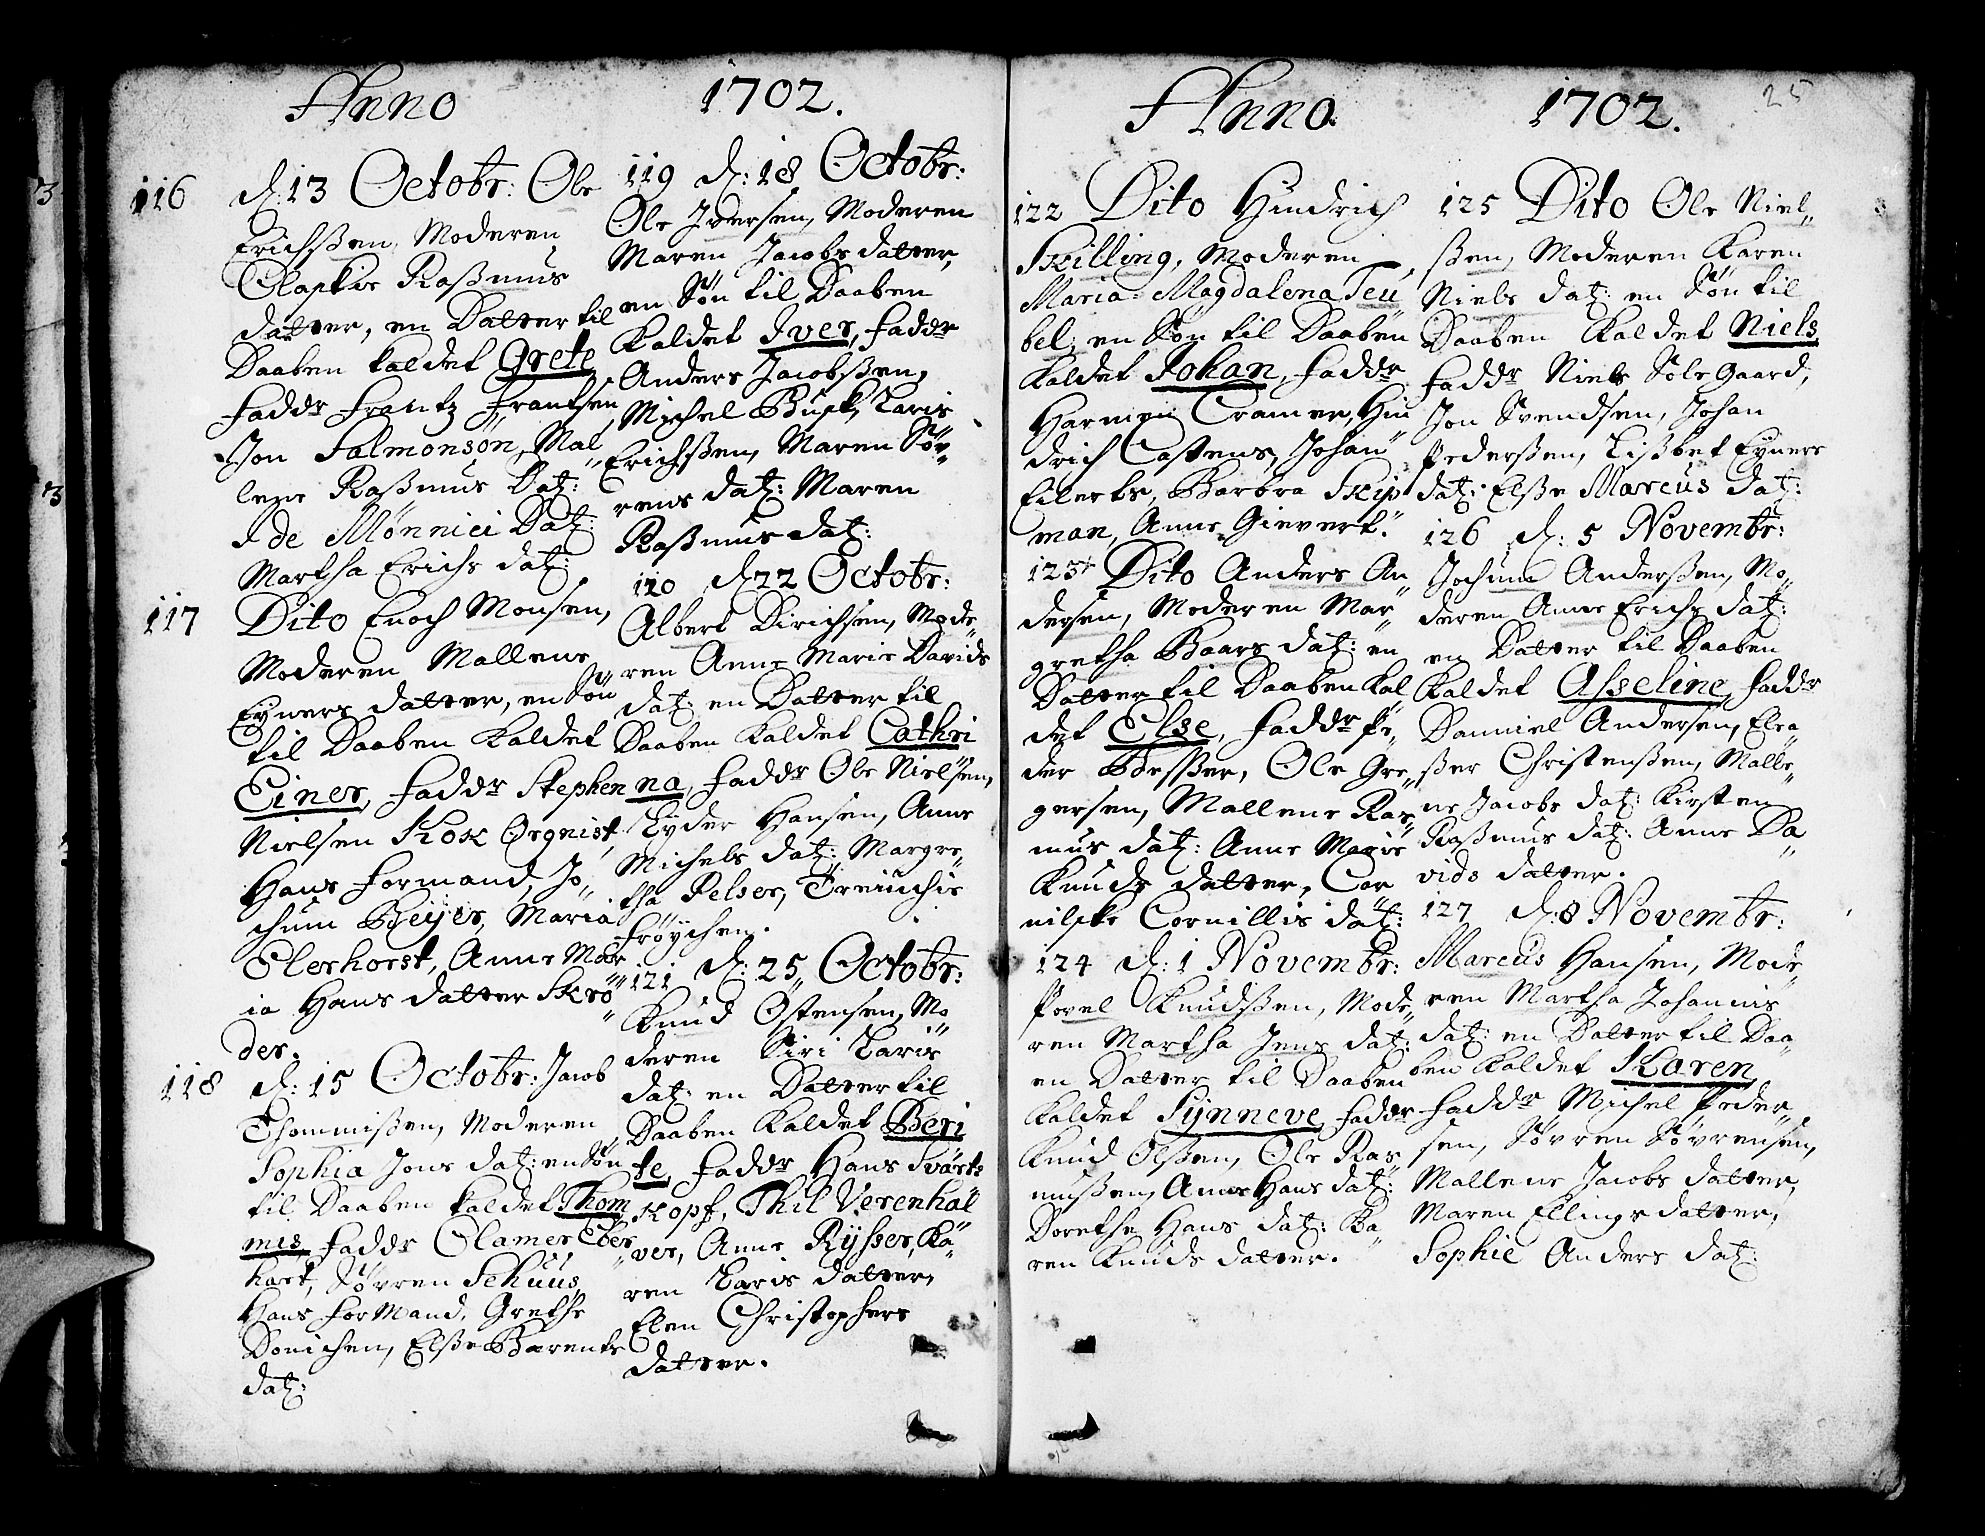 Anno 1702.
116 d. 13 Octobr: Ole
Erichsßen, Moderen
Raßmus
datter, en Datter til
Daaben kaldet Grete
Faddr Frantz Frantsen
Jon Salmonsøn, Mal„
lene Raßmus Datz:
Ide Mønnici Datz:
Martha Erichs datz:
117 Dito Enoch Monsen,
Moderen Mallene
Eyners datter, en Søn
til Daaben kaldet
Einer, Faddr Stephen
Nielsen Kok Orgnist,
Hans Formand, Jo„
chum Beyer, Maria
Elerhorst, Anne Mar„
ia Hans datter Skrö„
der.
118 d: 15 Octobr: Jacob
Thommißen, Moderen
Sophia Jons datz: en Søn
til Daaben kaldet Thom„
mis, Faddr Clamer Eber„
hart, Søvren Schuus,
Hans ForMand, Grethe
Donichen, Elße Barents
datz:
119 d: 18 Octobr:
Ole Iversen, Moderen
Maren Jacobs datter,
en Søn til Daaben
kaldet Iver, Faddr
Anders Jacobsßen,
Michel Busk, Laris
Erichsßen, Maren Søv„
rens datz: Maren
Raßmus datz:
120 d: 22 Octobr:
Albert Dirichsen, Mode„
ren Anne Marie Davids
datz: en Datter til
Daaben kaldet Cathri
na, Faddr Ole Nielsen,
Lyder Hansen, Anne
Michels datz: Margre„
tha Pelser, Treinchie
Frøychen.
121 d: 25 Octobr:
Knud Ostensen, Mo„
deren Siri Laris
datz: en Datter til
Daaben kaldet Beri
te, Faddr Hans Svarts
kopf, Thil Verenhal
ver, Anne Rysser, Ka„
ren Laris datter,
Elen Christophers
datter.
Anno 1702. 25
122 Dito Hindrich
Skilling, Moderen
Maria Magdalena Teu
bel, en Søn til Daaben
kaldet Johan, Faddr
Harmen Cramer, Hin
drich Castens, Johan
Eilerts, Barbra Skip
man, Anne Gievert.
123 Dito Anders An„
dersen, Moderen Mar„
gretha Baars datz: en
Datter til Daaben kal„
det Else, Faddr Pe„
der Ole Gre„
gersen, Mallene Ras„
mus datz: Anne Marie
Knuds datter, Cor
nilske Cornillis datz:
124 d: 1 Novembr:
Povel Knudsßen, Mode„
ren Martha Jens datz:
en Datter til Daaben
kaldet Synneve, Faddr
Knud Olsßen, Ole Ras„
mußen, Anne Hans datz:
Dorethe Hans datz: Ka„
ren Knuds datter.
125 Dito Ole Niel„
sßen, Moderen Karen
Niels datz: en Søn til
Daaben kaldet Niels
Faddr Niels Solegaard,
Jon Svendsen, Johan
Pedersßen, Lißbet Eyners
datz: Elße Marcus datz:
126 d: 5 Novembr:
Jochum Andersßen, Mo„
deren Anne Erichs datz:
en Datter til Daaben
kaldet Asseline, Faddr
Danniel Andersen, Elea„
ßer Christensßen, Malle„
ne Jacobs datz: Kirsten
Raßmus datz: Anne Da„
vids datter.
127 d: 8 Novembr:
Marcus Hansen, Mode„
ren Martha Johannis
datz: en Datter til Daa„
ben kaldet Karen
Faddr Michel Peder„
sen, Søvren Søvrensen,
Mallene Jacobs datter,
Maren Ellings datter,
Sophie Anders datz: